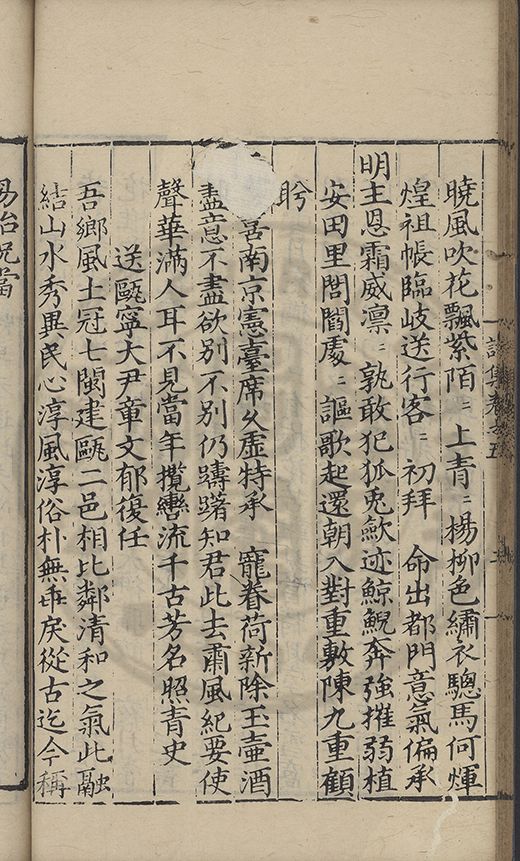 詩集卷之五
曉風吹花飄紫陌〻上青〻楊柳色繡衣驄馬何煇
煌祖帳臨岐送行客〻初拜　命出都門意氣偏承
明主恩霜威凛〻孰敢犯狐兎歛迹鯨鯢奔強摧弱植
安田里閭閻處〻謳歌起還朝入對重敷陳九重顧
盻
南京憲臺席久虛特承　寵眷荷新除玉壺酒
盡意不盡欲别不别仍躊躇知君此去肅風紀要使
聲華滿人耳不見當年攬轡流千古芳名照青史
送甌寧大尹章文郁復任
吾鄉風土冠七閩建甌二邑相比鄰清和之氣此融
結山水秀異民心淳風淳俗朴無乖戾從古迄今稱
易治況當